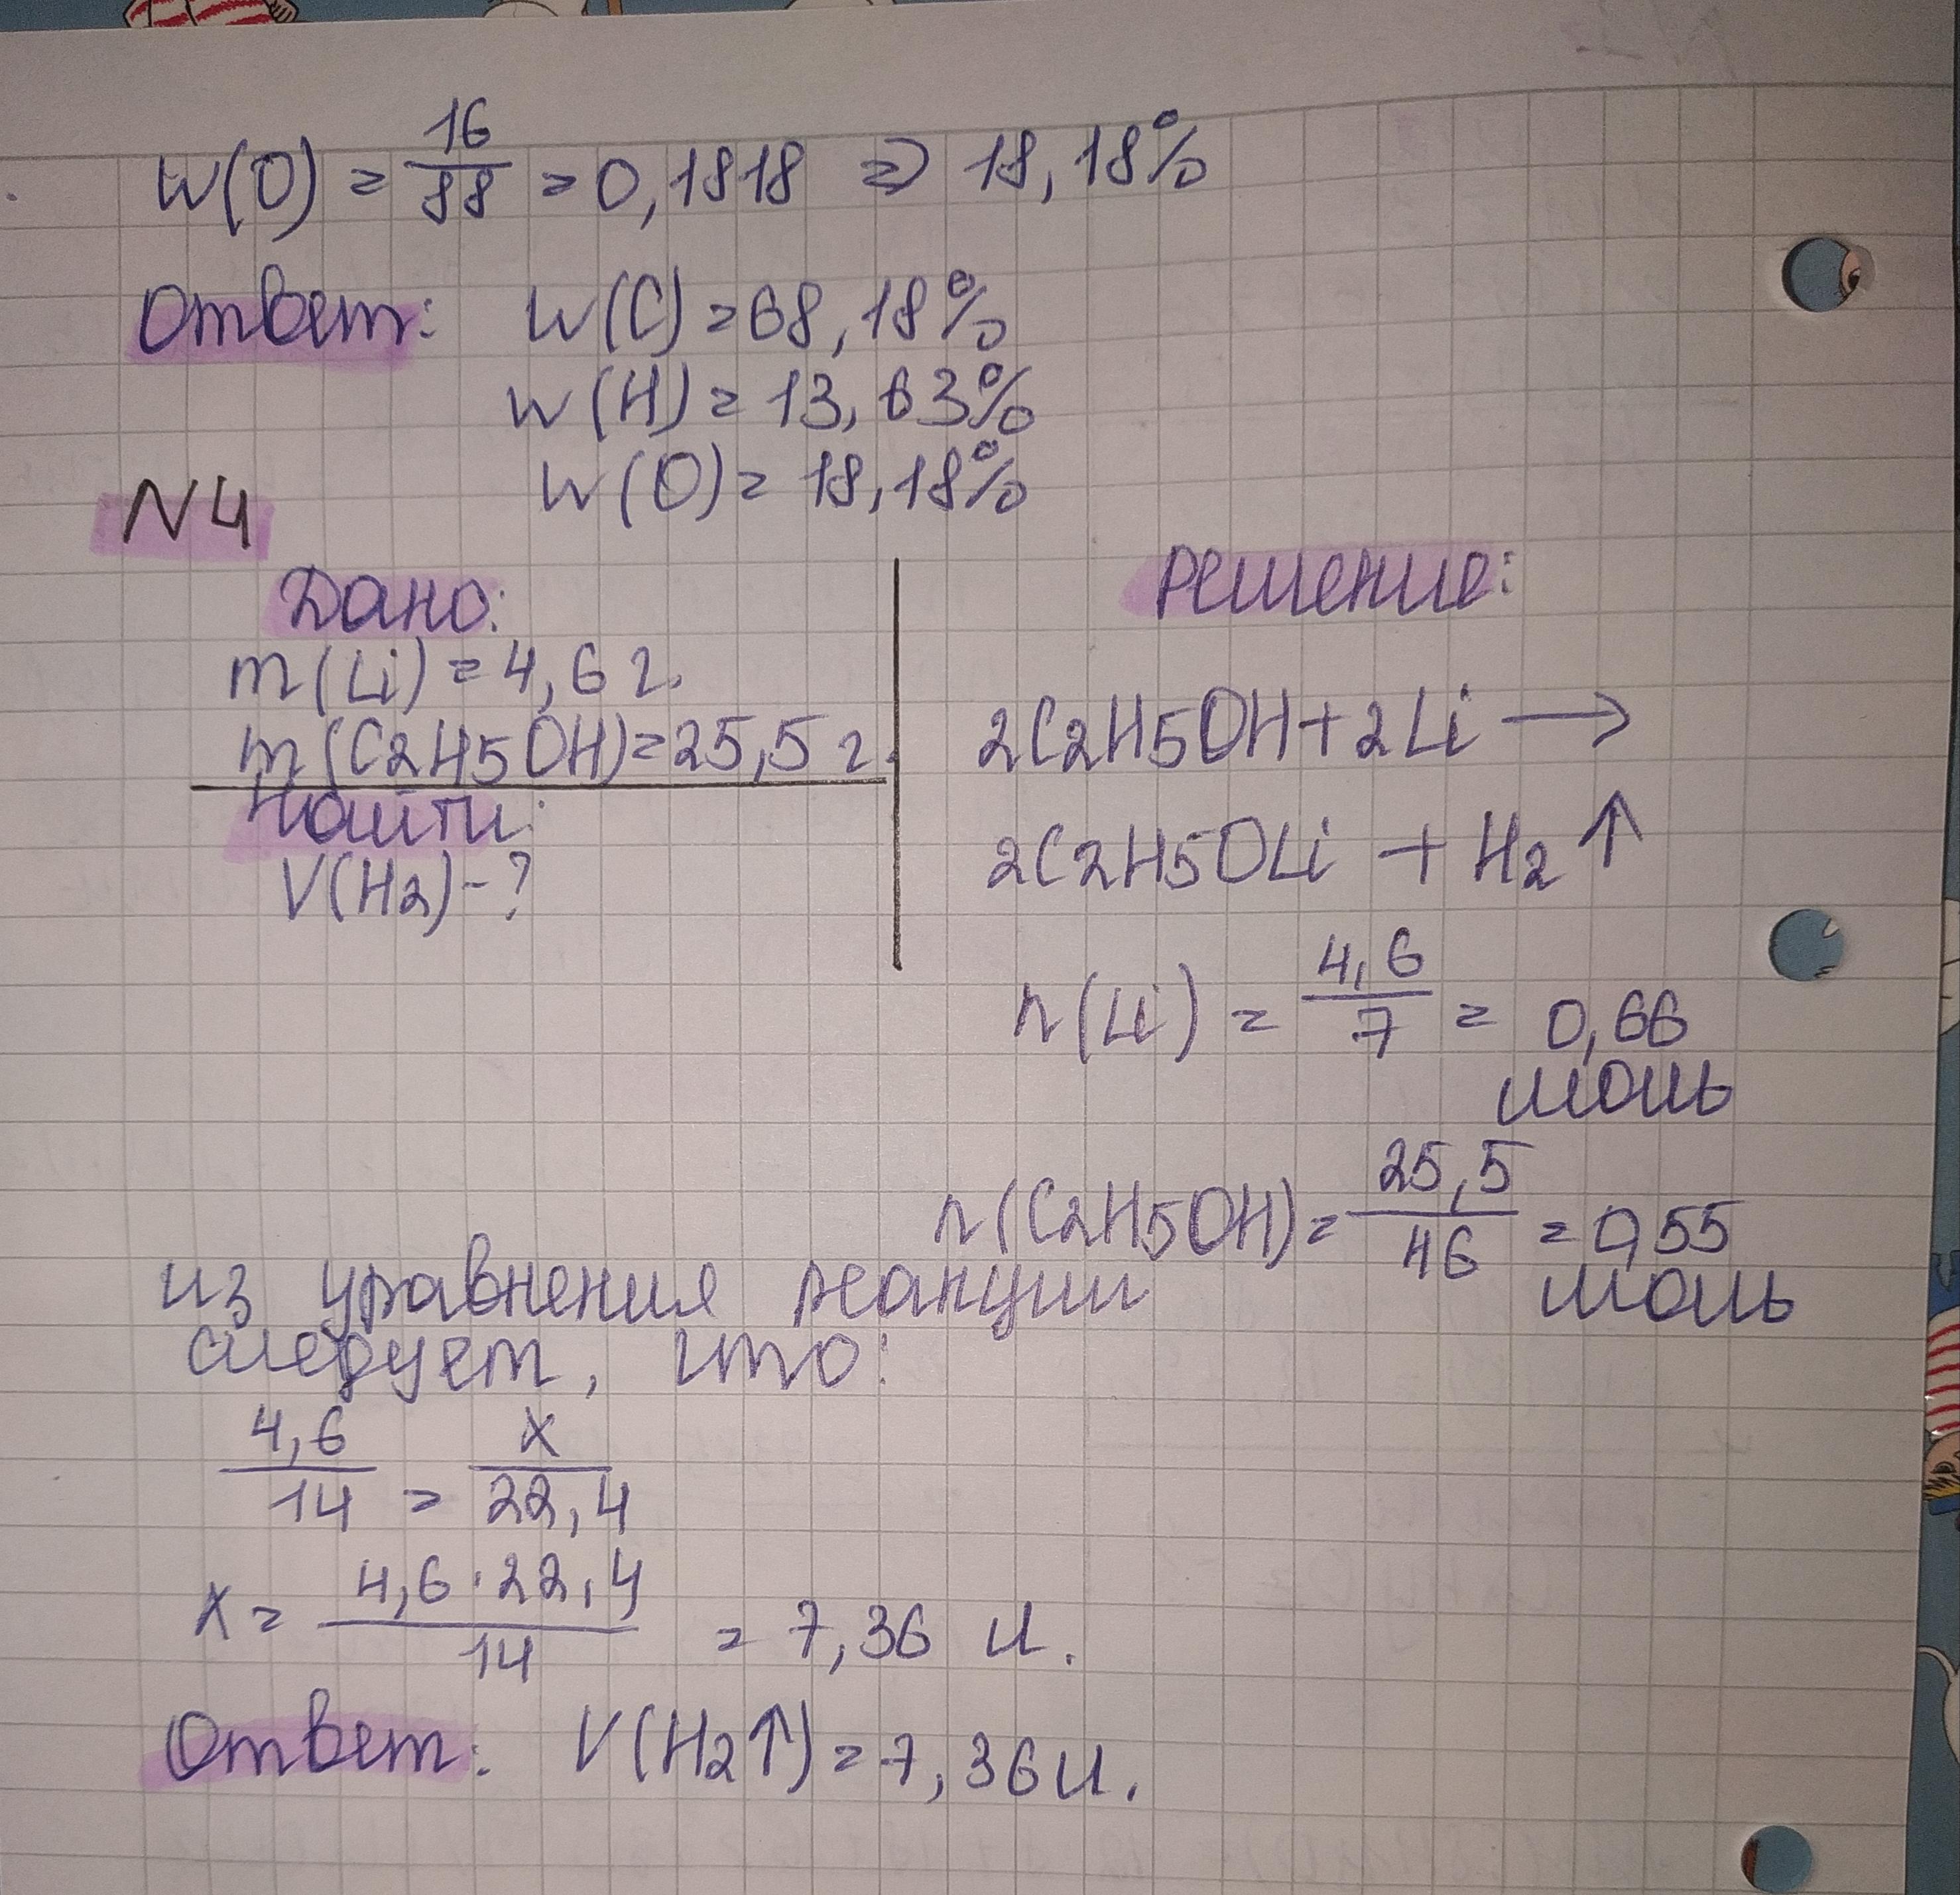 W(O) = 16/88 = 0,1818 => 18,18%
Ответ: W(C) = 68,18%
W(H) = 13,63%
W(O) = 18,18%
N4
Дано:
m(Li) = 4,6 г.
m(C2H5OH) = 25,5 г.
Найти:
V(H2) - ?
Решение:
2C2H5OH + 2Li →
2C2H5OLi + H2↑
n(Li) = 4,6/7 = 0,66
моль
n(C2H5OH) = 25,5/46 = 0,55
моль
из уравнения реакции
следует, что:
4,6/14 = x/22,4
x = 4,6·22,4/14 = 7,36 л.
Ответ: V(H2↑) = 7,36 л.